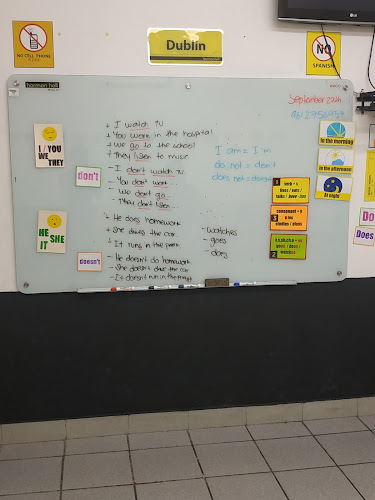 NO CELL PHONE
Dublin
NO
SPANISH
LG
harmon hall
September 24th
I / YOU
WE
THEY
don't
+ I watch TV
+ You work in the hospital
+ We go to the school
+ They listen to music
- I don't watch TV
- You don't work
- We don't go
- They don't listen...
HE
SHE
IT
doesn't
+ He does homework
+ She drives the car
+ It runs in the park
- He doesn't do homework
- She doesn't drive the car
- It doesn't run in the park
- watches
- goes
- does
I am = I'm
do not = don't
does not = doesn't
1
verb + s
3
consonant + y
studies / plays
goes / does /
watches
2
in the morning
in the afternoon
at night
Do
Does